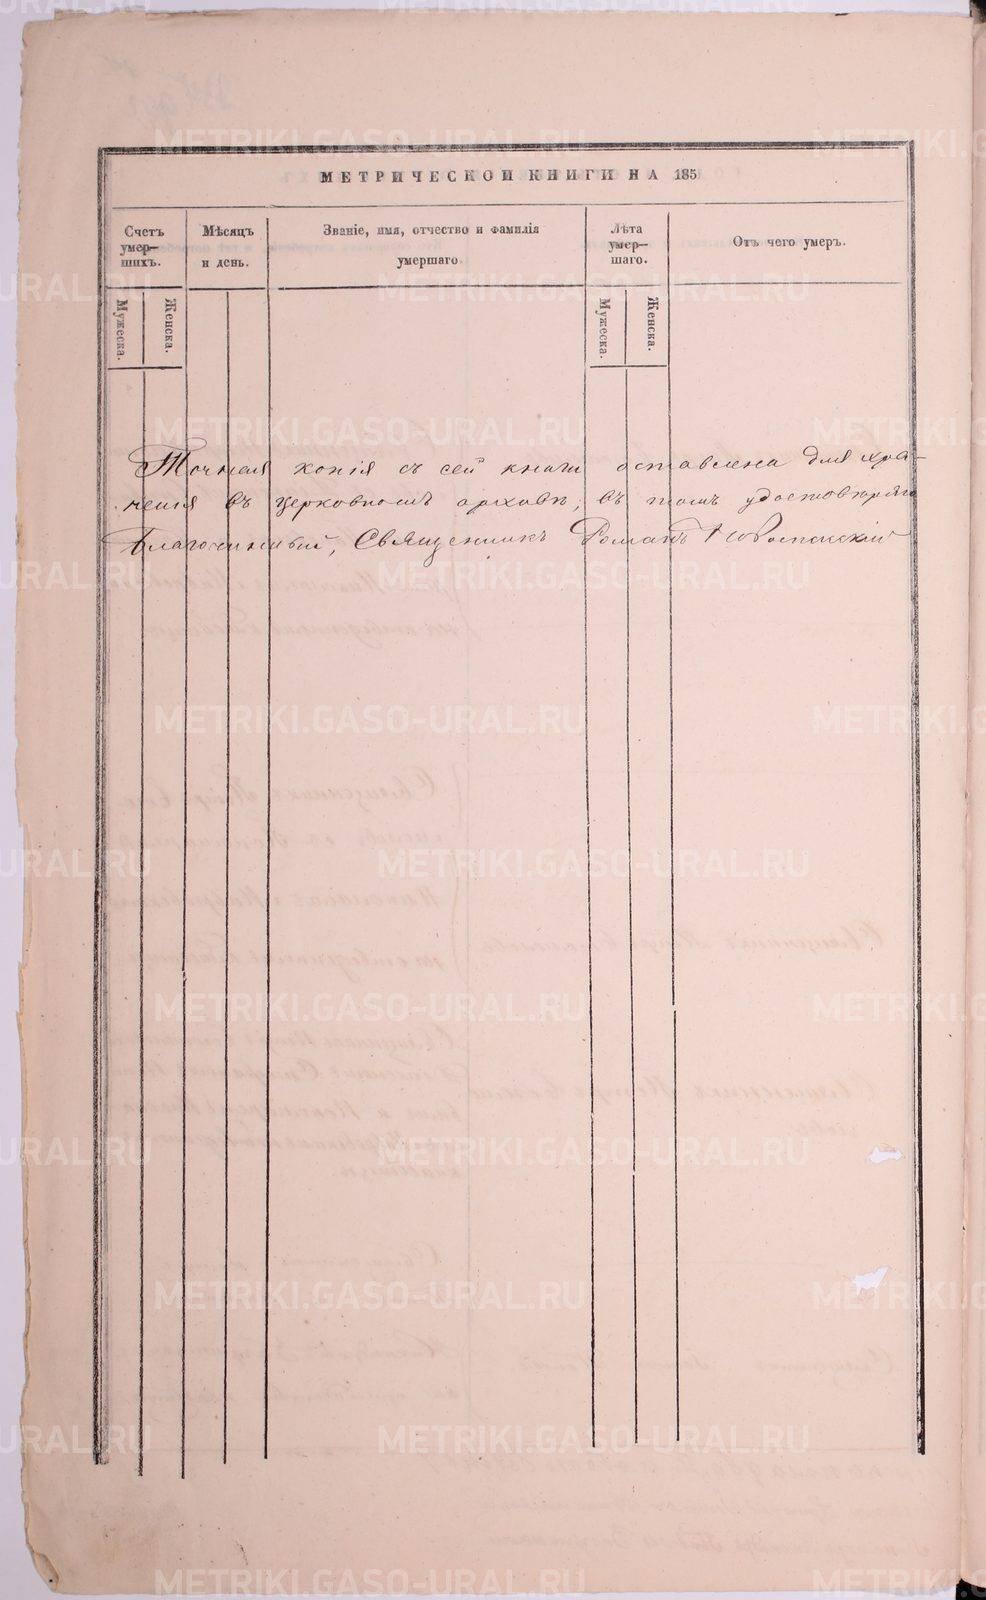 МЕТРИЧЕСКОЙ КНИГИ НА 185
Счетъ умер— шихъ.
Мѣсяцъ и день.
Званіе, имя, отчество и фамилія умершаго.
Лѣта умер— шаго.
Отъ чего умеръ.
Мужеска.
Женска.
Мужеска.
Женска.
Точная копія съ сей книги оставлена для хра-
ненія въ церковномъ архивѣ, въ томъ удостовѣряю
Благочинный, Священникъ Романъ
METRIKI.GASO-URAL.RU